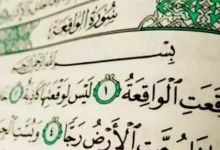 سُورَةُ الْوَاقِعَةِ
بِسْمِ
ٱلْوَاقِعَةُ ١ لَيْسَ لِوَقْعَتِهَا كَاذِبَةٌ
ٱلْأَرْضُ رَجًّا ٤ وَبُسَّتِ